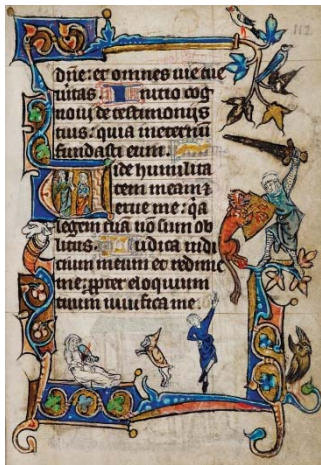 112
dn̄e: et omnes uie tue
ūitas Initio cog
noui de testimonijs
tuis: quia in eternū
fundasti eum.
Uide humilita
tem meam ⁊
erue me: qͣ
legem tuā nō sum ob
litus. Iudica iudi
cium meum et redime
me: ꝓpter eloquium
tuum uiuifica me